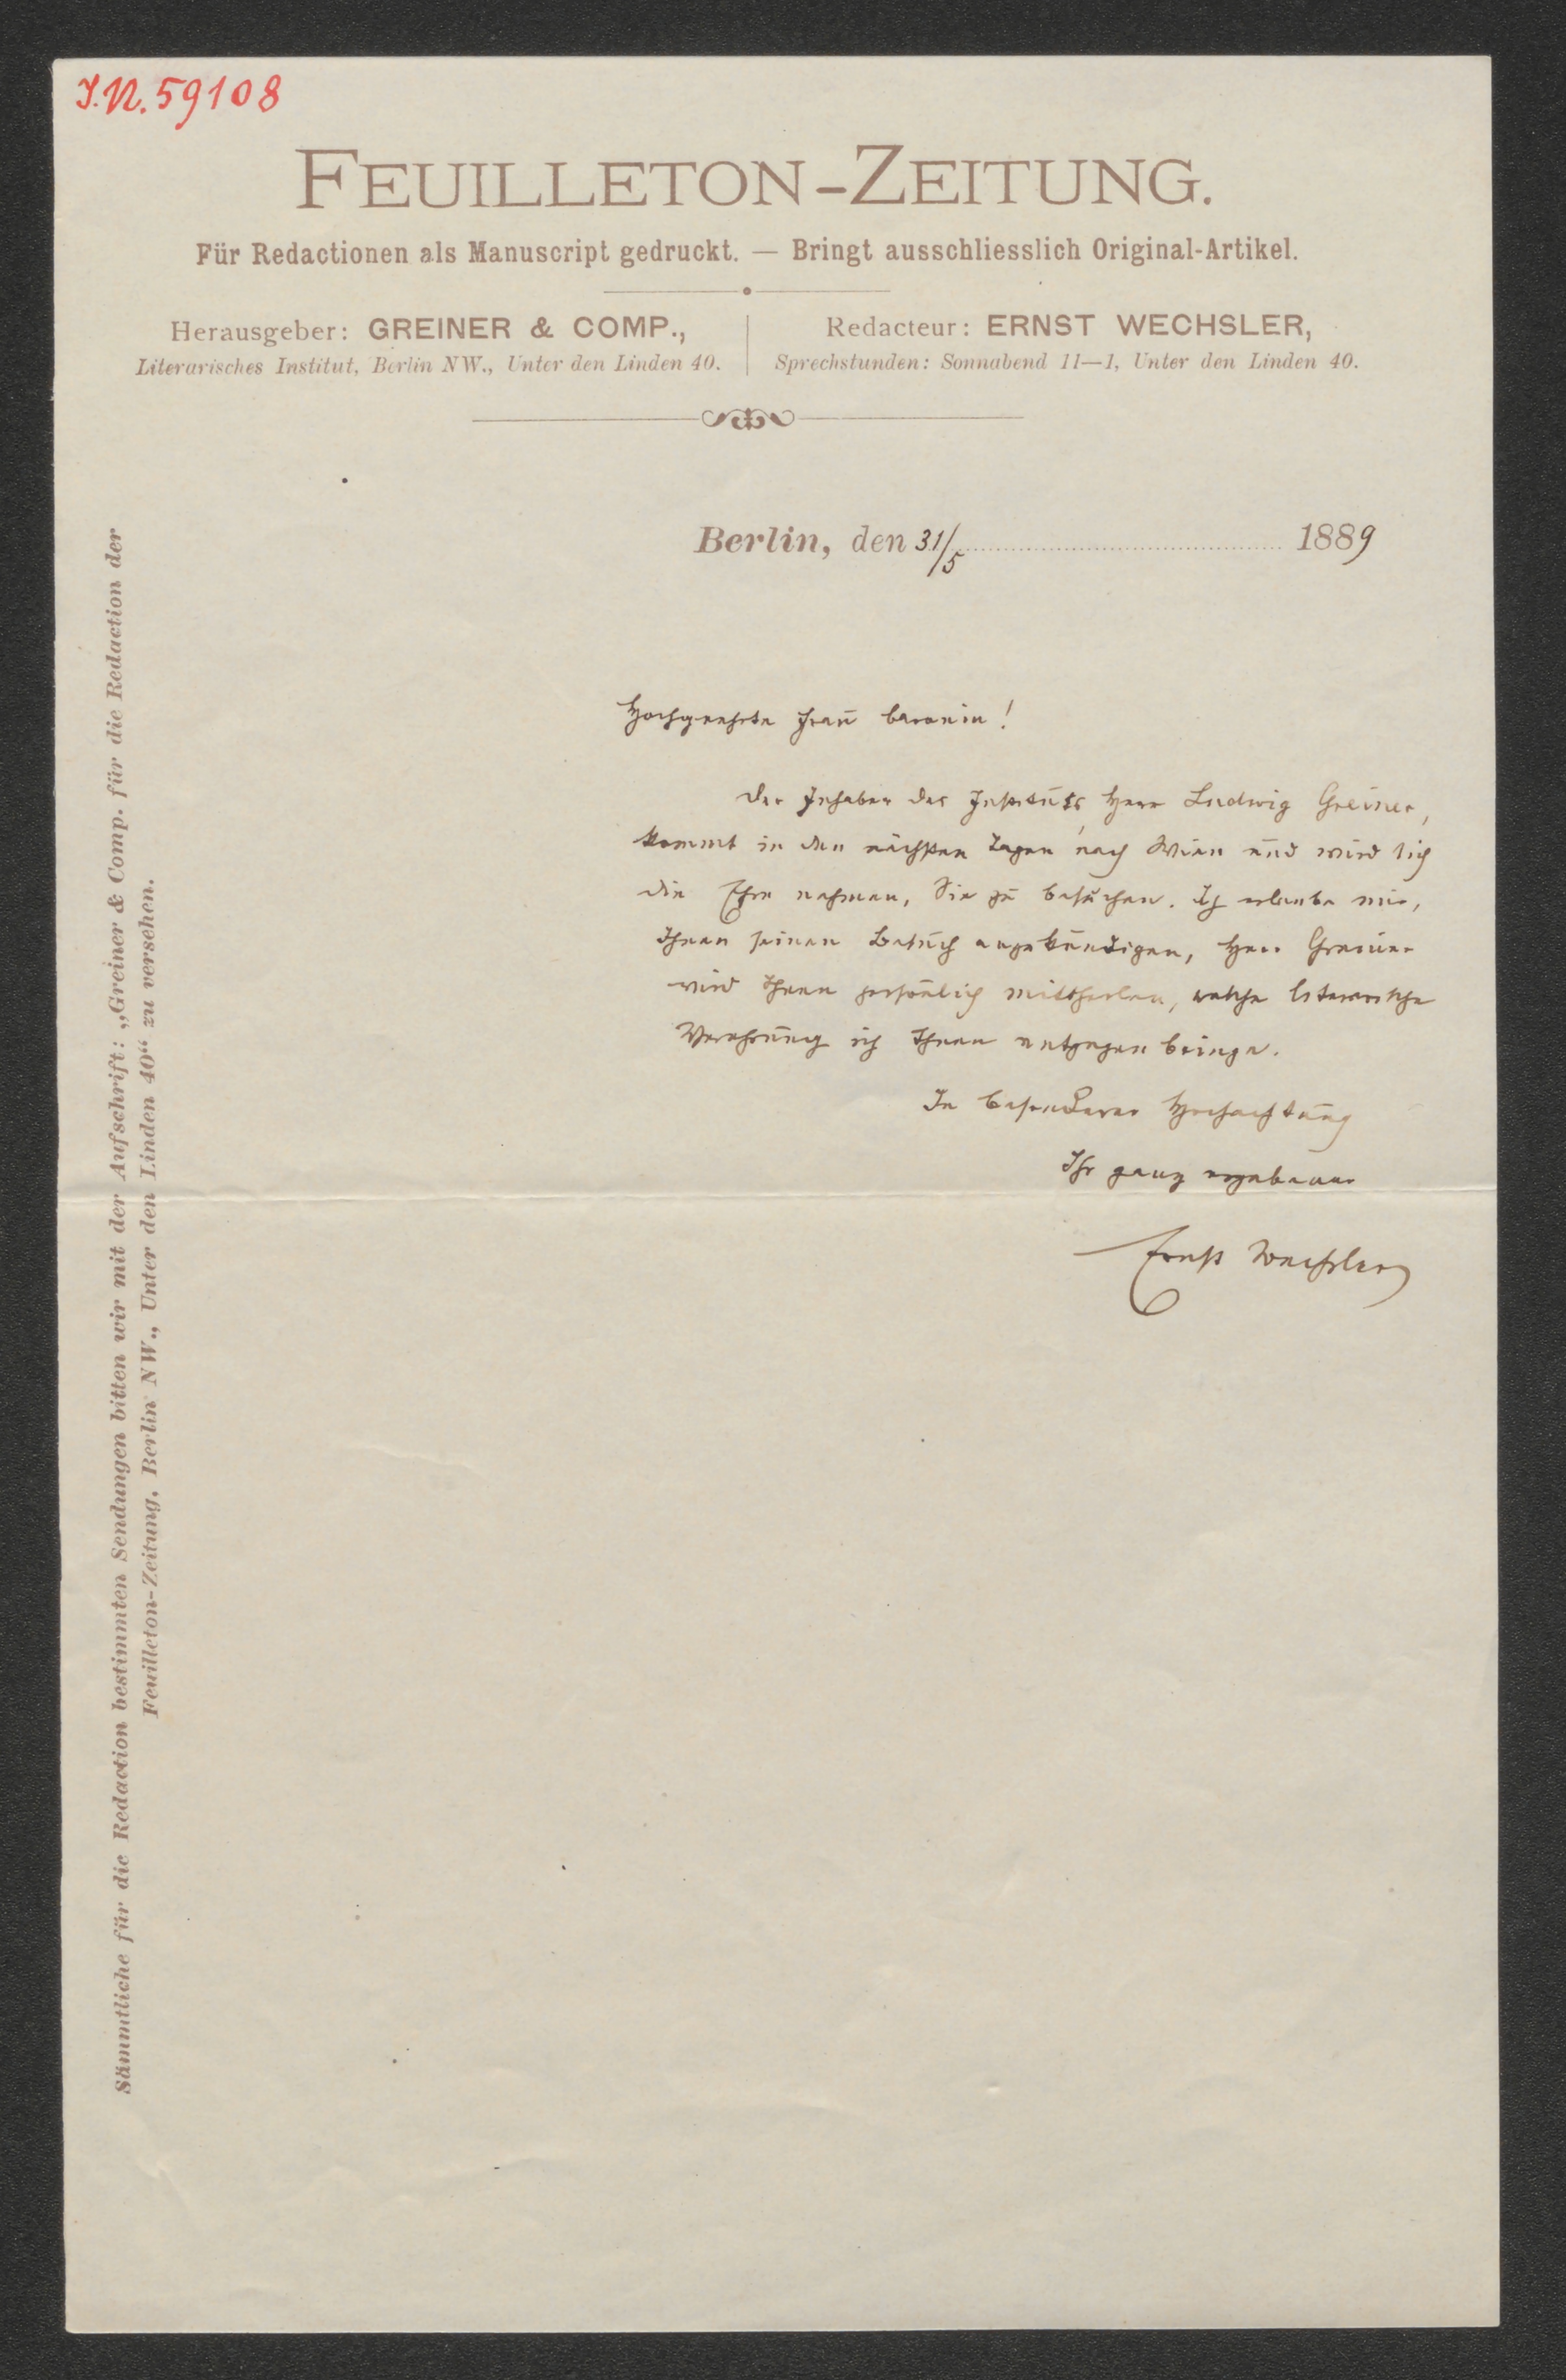 I.N. 59108
FEUILLETON-ZEITUNG.
Für Redactionen als Manuscript gedruckt. — Bringt ausschliesslich Original-Artikel.
Herausgeber: GREINER & COMP.,
Literarisches Institut, Berlin NW., Unter den Linden 40.
Redacteur: ERNST WECHSLER,
Sprechstunden: Sonnabend 11—1, Unter den Linden 40.
Berlin, den 31/5 1889
Hochgeehrte Frau Baronin!
Der Inhaber des Instituts, Herr Ludwig Greiner,
kommt in den nächsten Tagen nach Wien und wird sich
die Ehre nehmen, Sie zu besuchen. Ich erlaube mir,
Ihnen seinen Besuch anzukündigen, Herr Greiner
wird Ihnen persönlich mittheilen, welche literarische
Verehrung ich Ihnen entgegen bringe.
In besonderer Hochachtung
Ihr ganz ergebener
Ernst Wechsler
Sämmtliche für die Redaction bestimmten Sendungen bitten wir mit der Aufschrift: „Greiner & Comp. für die Redaction der
Feuilleton-Zeitung. Berlin NW., Unter den Linden 40“ zu versehen.